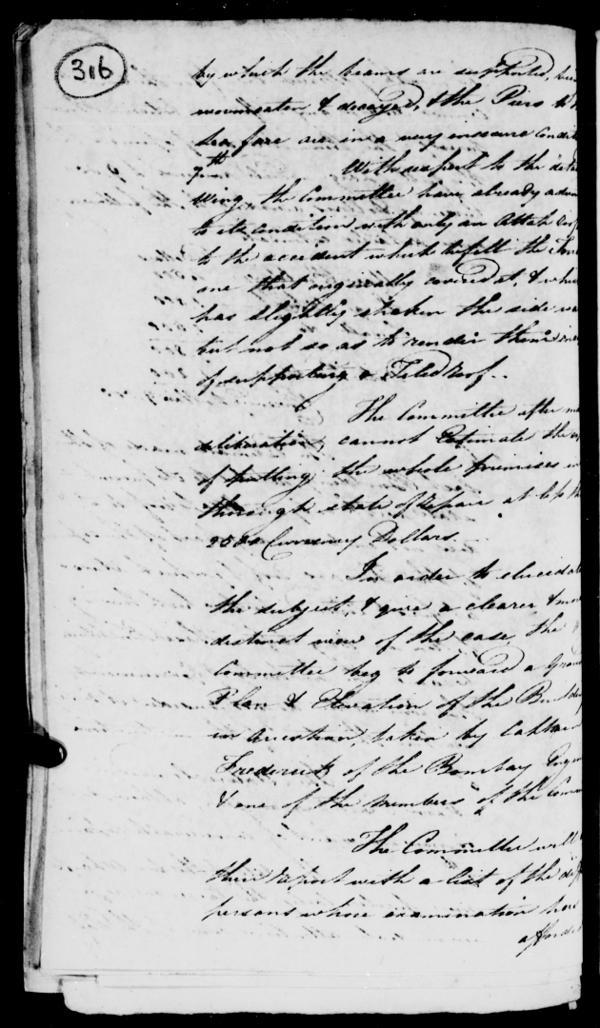 316
by which the beams are supported,
worm eaten & decayed, & the Piers to
Sea face are in a very insecure condit
7th With respect to the
Wing, the Committee have already adver
to its condition with only an Attap roof
to the accident which befell the
one that originally covered it, & whi
has slightly shaken the side wa
but not so as to render them
of supporting a Tiled roof..
The Committee after
deliberation, cannot Estimate the
of putting the whole premises in
thorough state of repair at less th
2500 Currency Dollars.
In order to elucidat
the subject, & give a clearer & mor
distinct view of the case, the
Committee beg to forward a Groun
Plan & Elevation of the Buildin
in question, taken by Captain
Frederick of the Bombay Engin
& one of the members of the Comm
The Committee will
their report with a list of the diff
persons whose examination have
afforded